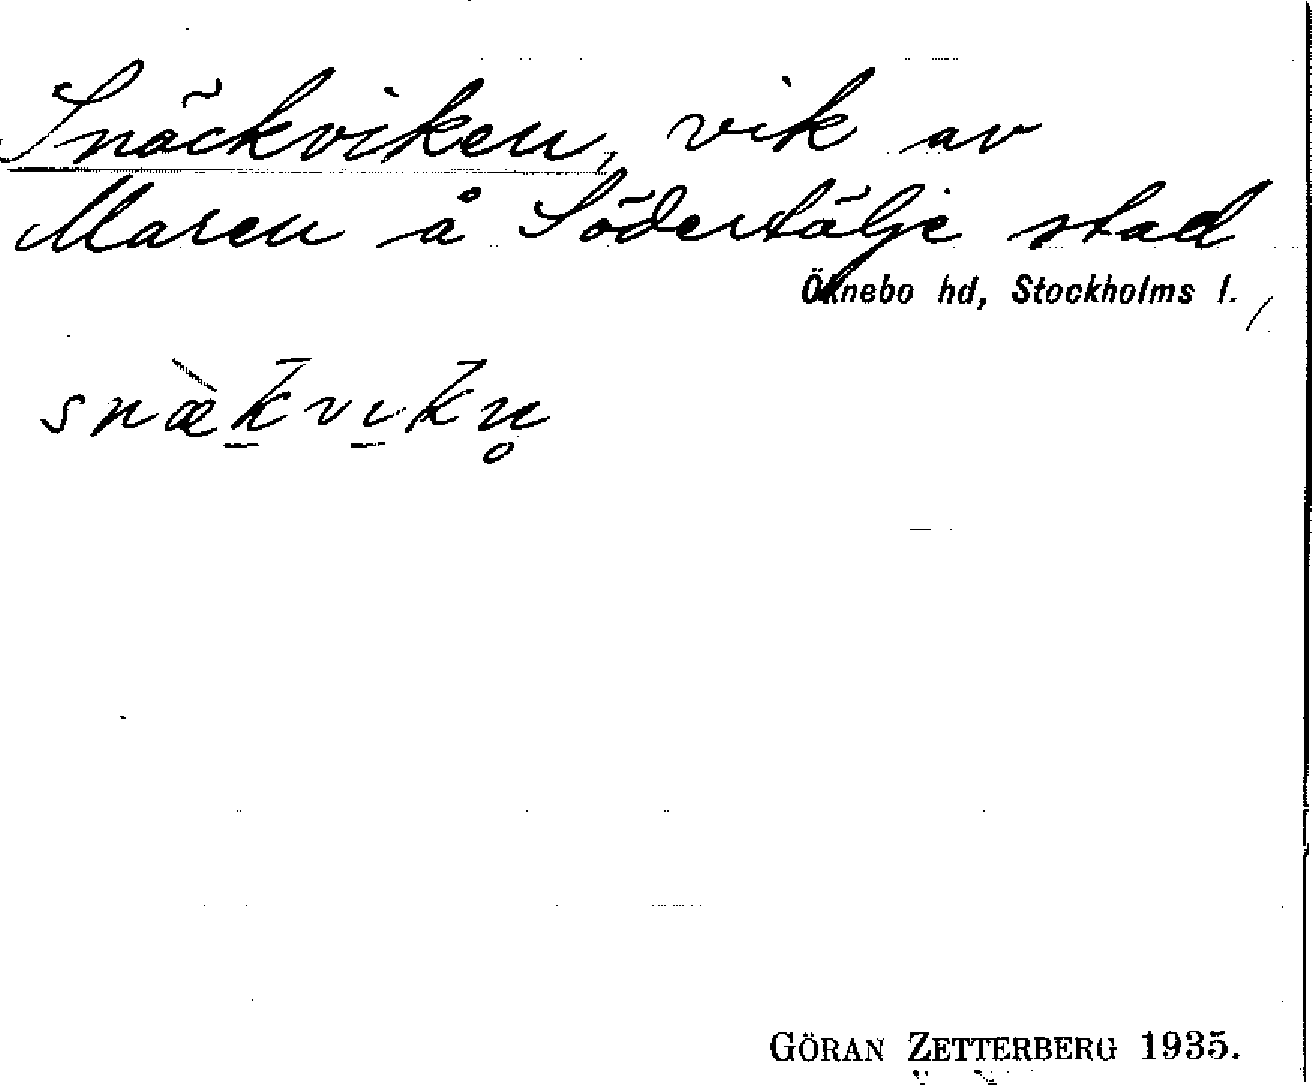 Snäckviken, vik av
Maren å Södertälje stad
Öknebo hd, Stockholms l.
snæ̀kvikn̥
GÖRAN ZETTERBERG 1935.